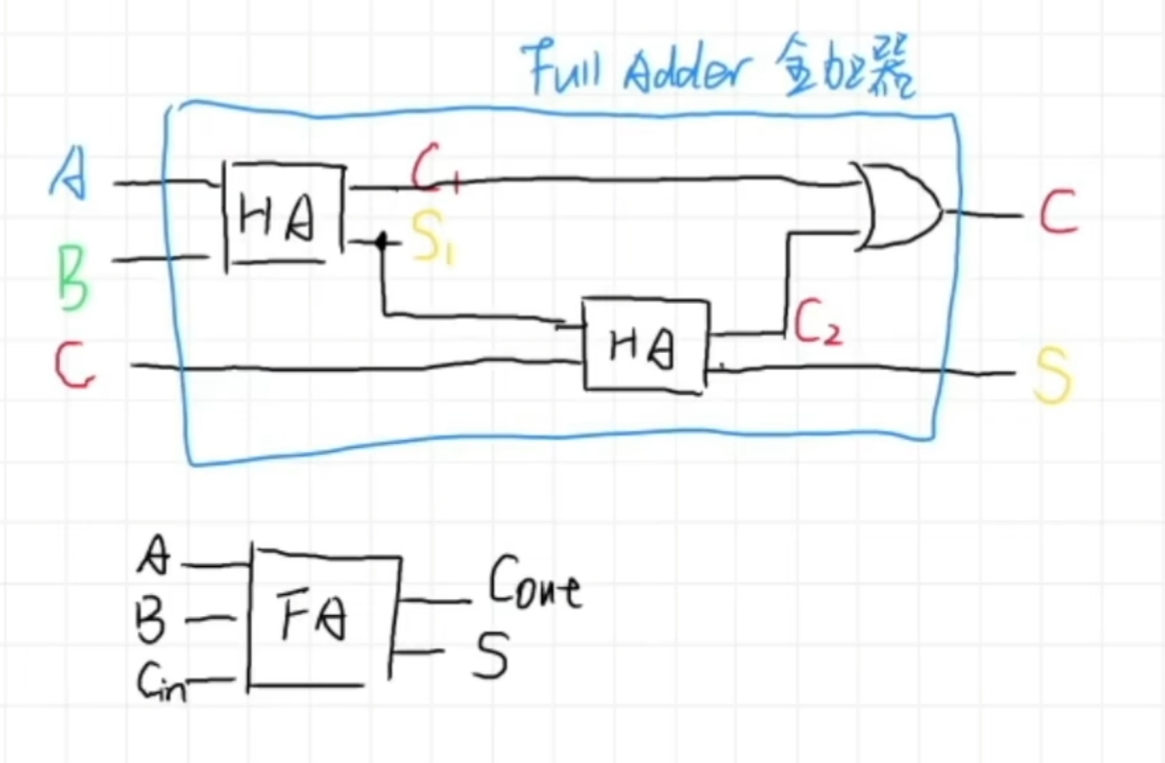 Full Adder 全加器
A
HA
C1
C
B
S1
C
HA
C2
S
A
B
Cin
FA
Cout
S